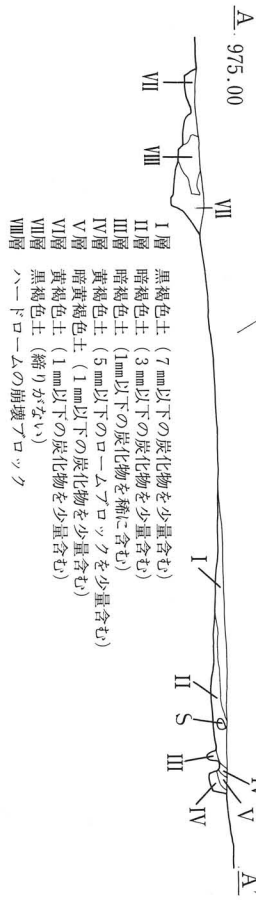 A 975.00 A'
VII
VIII
VII
I
II
S
III
IV
V
IV
I層 黒褐色土(7mm以下の炭化物を少量含む)
II層 暗褐色土(3mm以下の炭化物を少量含む)
III層 暗褐色土(1mm以下の炭化物を稀に含む)
IV層 黄褐色土(5mm以下のロームブロックを少量含む)
V層 暗黄褐色土(1mm以下の炭化物を少量含む)
VI層 黄褐色土(1mm以下の炭化物を少量含む)
VII層 黒褐色土(締りがない)
VIII層 ハードロームの崩壊ブロック